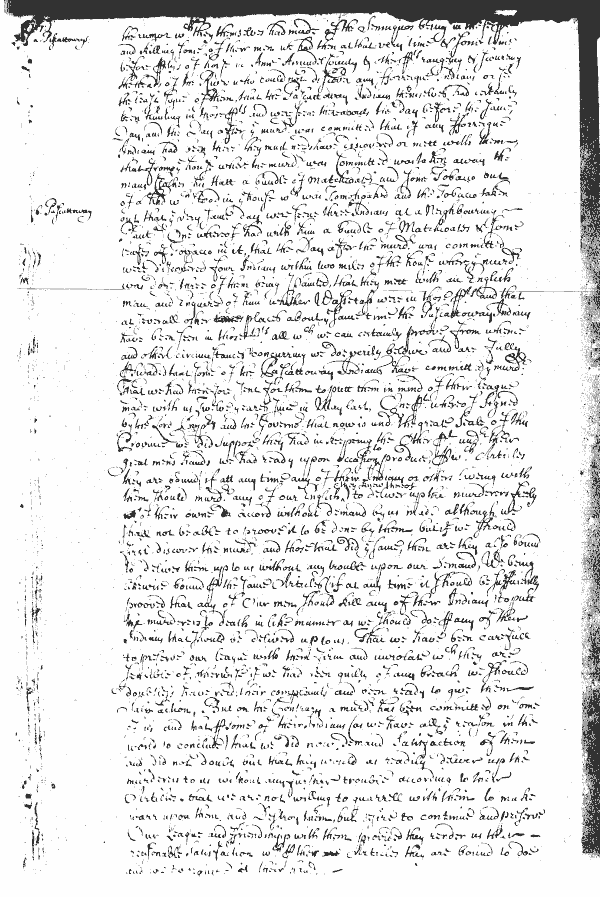 Pascattoway
the rumor wch they themselves had made of the Sennuquos being in
and killing some of their men we had then at that very time & some time
before of horse in Ann Arundel County & the ranging & Scowring
the heads of the Rivers who could not discover any fforreigne Indians or
the least signe of them, that the Pascattoway Indians themselves had certainly
been hunting in those pts and were seen thereabouts the day before the same
day, and the Day after ye murdr was committed that if any fforreigne
Indians had been there they must needs have discovered or mett with them
that from ye house where the murdr was Committed was taken away the
mans Clothes his Hatt a bundle of Matchcoates and some Tobacco out
of a hhd wch stood in ye house wch was Tomahawked and the Tobacco taken
Pascattoway
out that ye very same day were seene three Indians at a Neighbouring
One whereof had with him a bundle of Matchcoates & some
leafes of Tobacco in it, that the Day after the murdr was committed
were discovered four Indians within two miles of the house where ye murdr
was done three of them being Painted, that they mett with an English
man, and Enquired of him whether were in those pts and that
at severall other places about ye same time the Pascattoway Indians
have been seen in those pts all wch we can certainly proove from whence
and other circumstances concurring we doe verily beleive and are fully
that some of the Pascattoway Indians have committed ye murdr
That we had therefore sent for them to putt them in mind of their league
made with us Twelve yeares since in May last, One pt whereof Signed
by the and the Governor that now is undr the great Seale of this
Province we did suppose they had in keeping the Other pt undr their
Great mens hands we had ready upon occasion to produce, by wch Articles
they are bound if att any time any of their Indians or others liveing with
them should murdr any of our English to deliver up the murderers freely
of their owne accord without demand by us made although we
shall not be able to proove it to be done by them but if we should
first discover the murdr and those that did ye same, then are they also bound
to deliver them up to us without any trouble upon our Demand, We being
likewise bound by the same Articles if at any time it should be sufficiently
prooved that any of Our men should kill any of their Indians to putt
murderers to death in like manner as we should doe any of their
Indians that should be delivered up to us. That we have been carefull
to preserve our league with them firm and inviolate wch they are
sensible of, otherwise if we had been guilty of any breach we should
doubtless have recd their complaints and been ready to give them
Satisfaction, But on the Contrary a murdr has been committed on some
of us and that by some of their Indians (as we have all ye reason in the
world to conclude) that we did now demand Satisfaction of them
and did not doubt but that they would as readily deliver up the
murderers to us without any further trouble according to their
Articles, that we are not willing to quarrell with them to make
warr upon them, and Destroy them, but desire to continue and preserve
Our League and ffriendship with them provided they render us their
reasonable Satisfaction wch by their Articles they are bound to doe
and we require at their hands